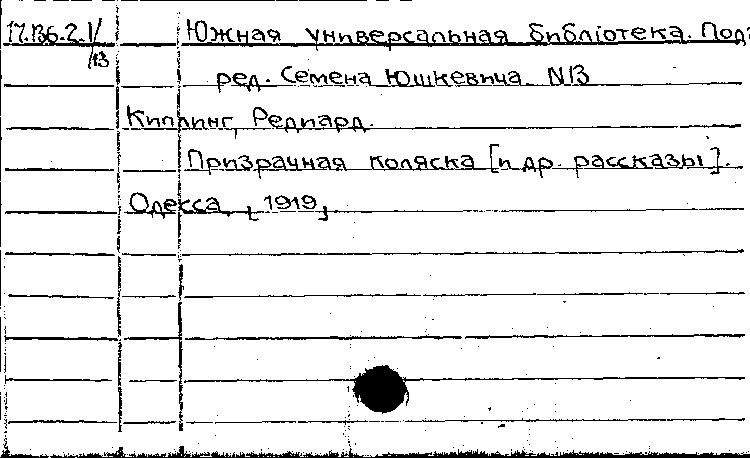 17.136.2.1/13
Южная универсальная библіотека. Под
ред. Семена Юшкевича N13
Киплинг, Редиард.
Призрачная коляска [и др. рассказы].
Одесса, [1919]